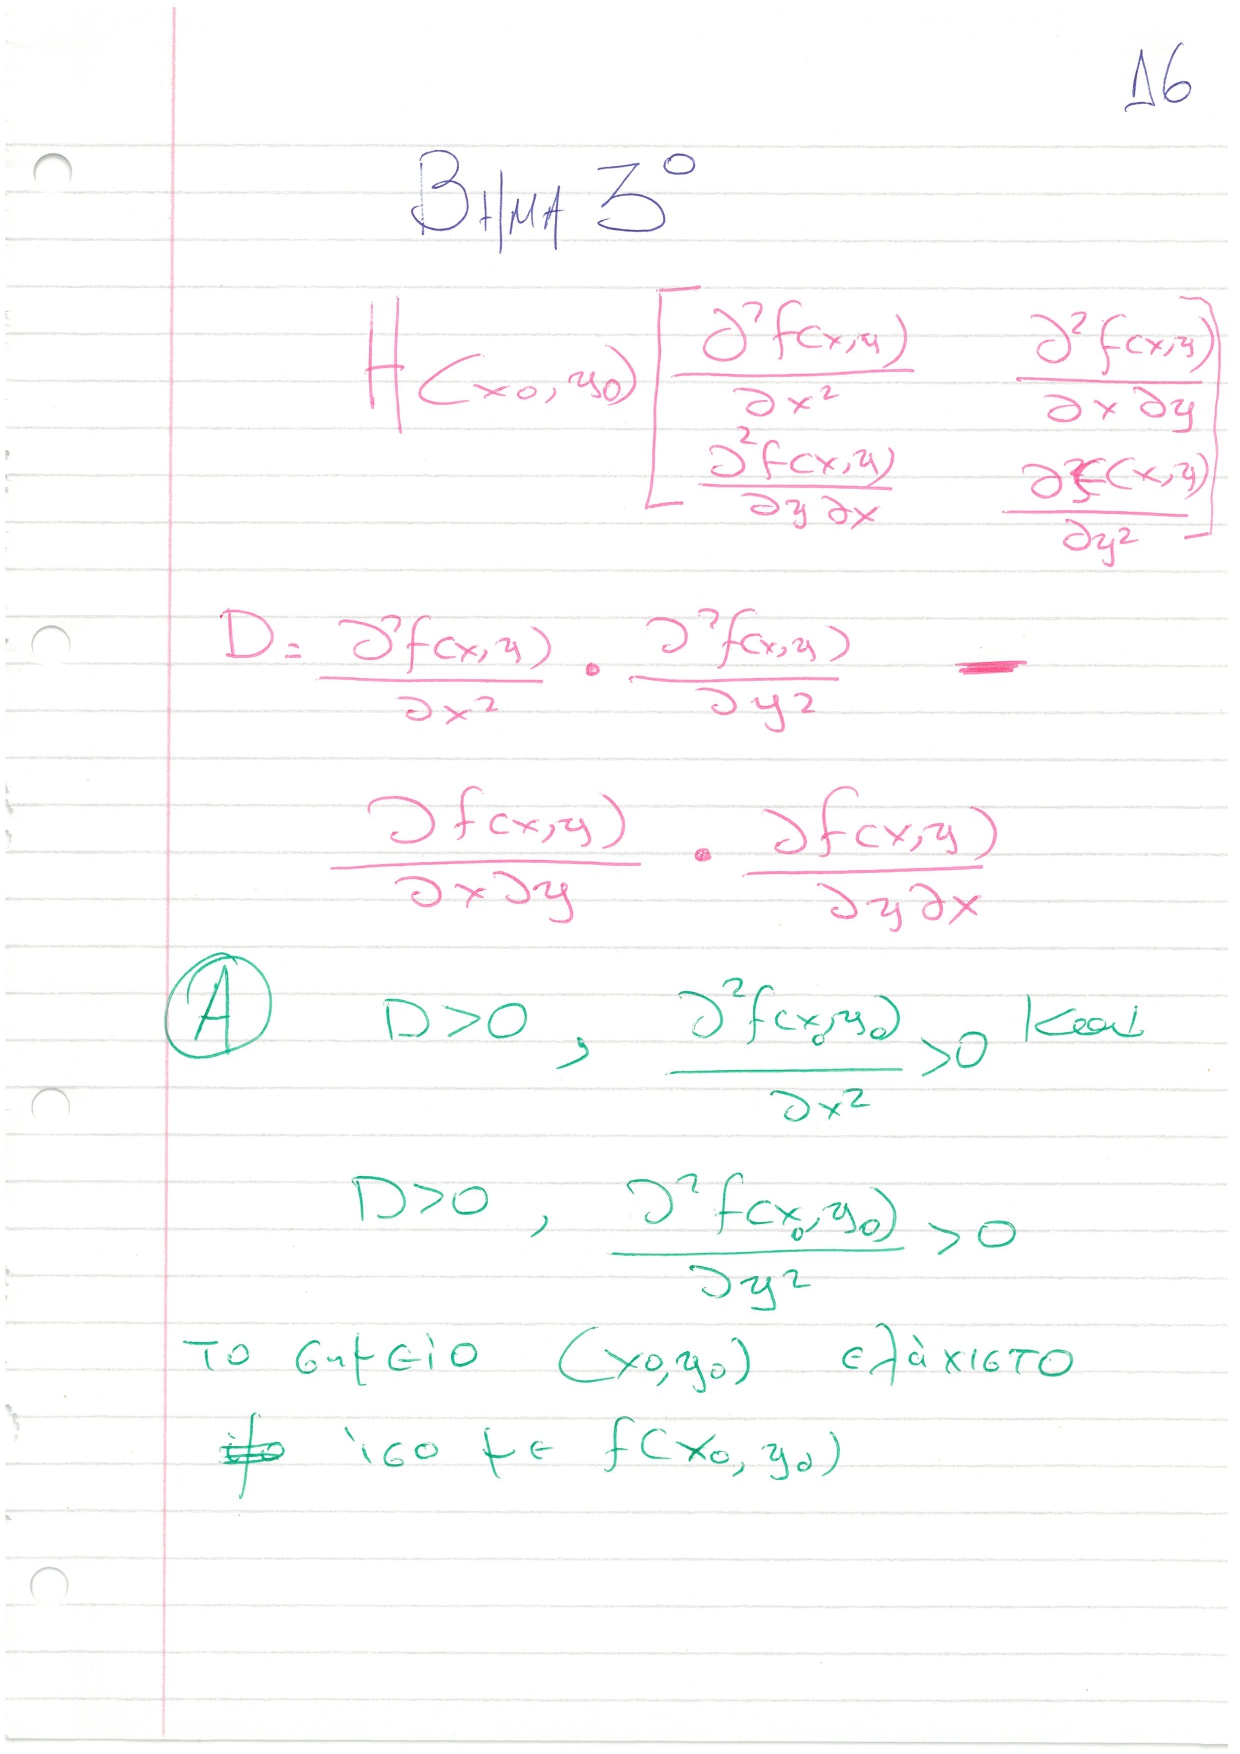 16
ΒΗΜΑ 3º
H(x0, y0) [ ∂²f(x,y)/∂x² ∂²f(x,y)/∂x∂y
∂²f(x,y)/∂y∂x ∂²f(x,y)/∂y² ]
D = ∂²f(x,y)/∂x² · ∂²f(x,y)/∂y² −
∂f(x,y)/∂x∂y · ∂f(x,y)/∂y∂x
Α D>0, ∂²f(x0,y0)/∂x² >0 και
D>0, ∂²f(x0,y0)/∂y² >0
το σημείο (x0,y0) ελάχιστο
ίσο με f(x0, y0)